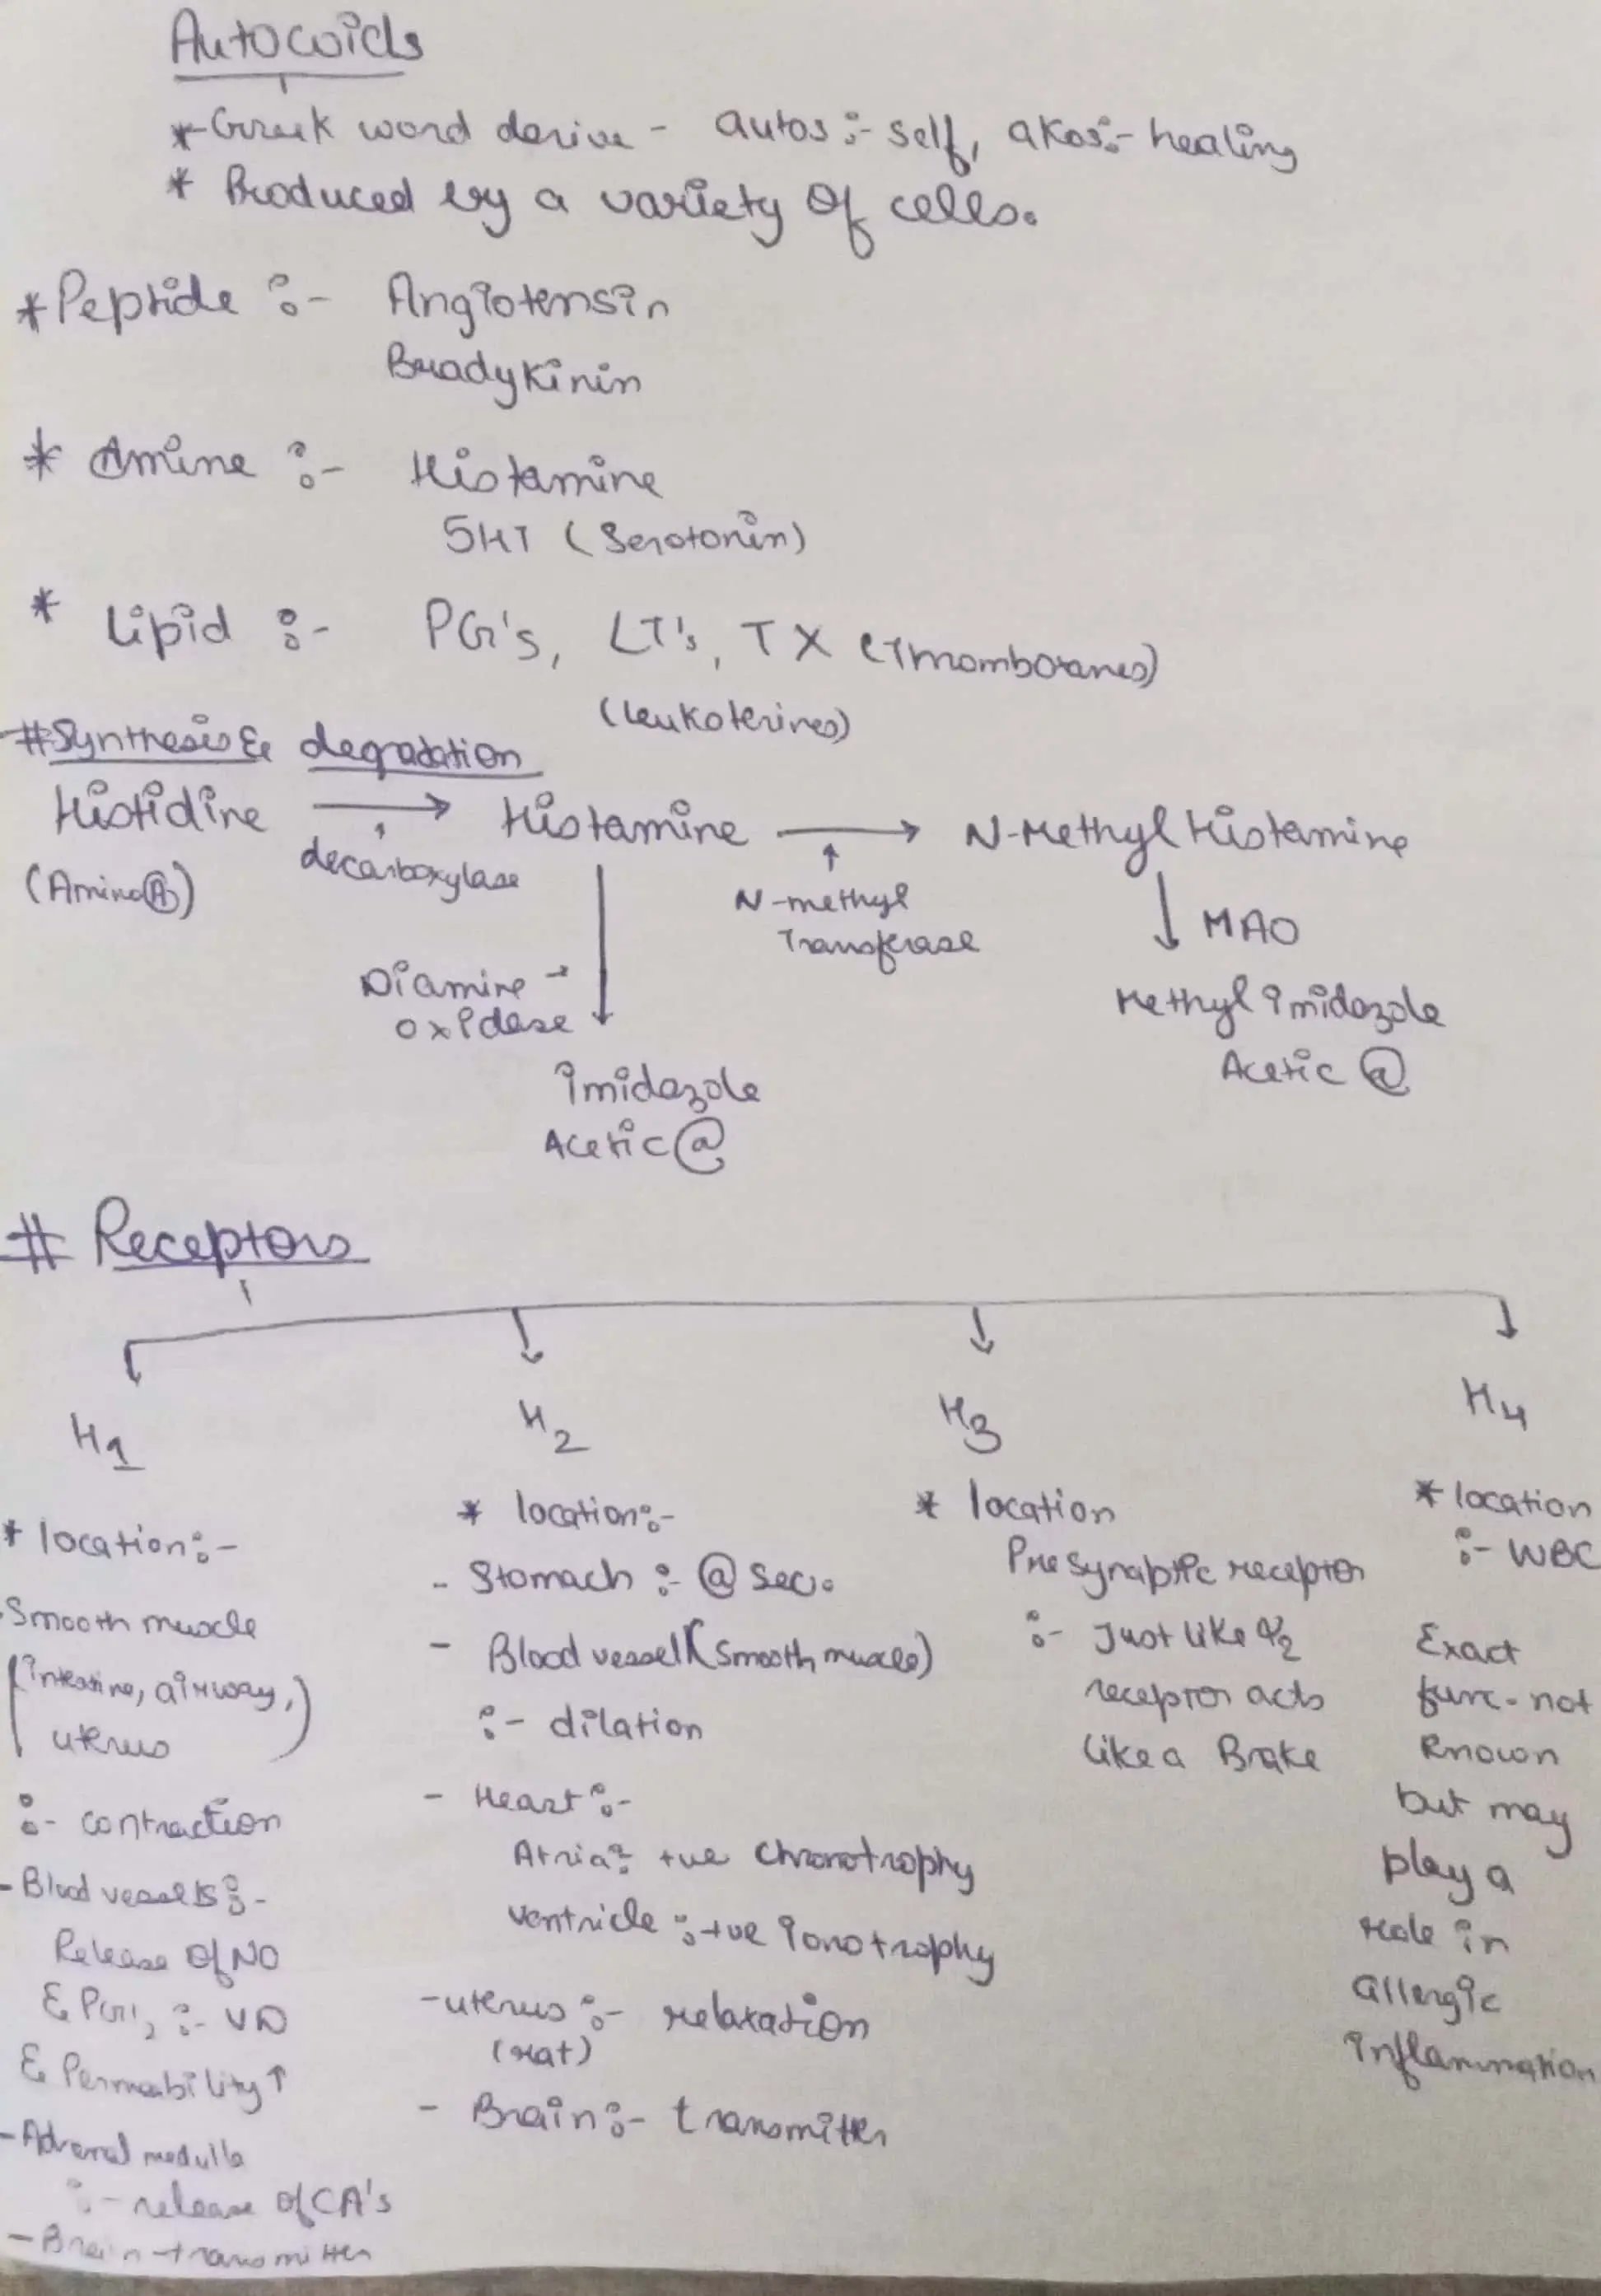 Autocoids
* Greek word derive - autos :- self, akos :- healing
* Produced by a variety of cells.
* Peptide :- Angiotensin
Bradykinin
* Amine :- Histamine
5HT (Serotonin)
* Lipid :- PG's, LT's, TX (Thromboxanes)
(leukoterines)
# Synthesis & degradation
Histidine → Histamine → N-Methyl Histamine
(Amino Ⓐ)
decarboxylase
N-methyl
Transferase
↓ MAO
Diamine →
oxidase
Methyl imidazole
Acetic @
imidazole
Acetic @
# Receptors
H1
* location :-
- Smooth muscle
(intestine, airway,
uterus)
:- contraction
- Blood vessels :-
Release of NO
& PGI2 :- VD
& Permeability ↑
- Adrenal medulla
:- release of CA's
- Brain - transmitter
H2
* location :-
- Stomach :- @ sec.
- Blood vessel (smooth muscle)
:- dilation
- Heart :-
Atria : +ve chronotrophy
ventricle : +ve ionotrophy
- uterus :- relaxation
(rat)
- Brain :- transmitter
H3
* location
Presynaptic receptor
:- Just like α2
receptor acts
like a Brake
H4
* location
:- WBC
Exact
func. not
known
but may
play a
role in
allergic
inflammation